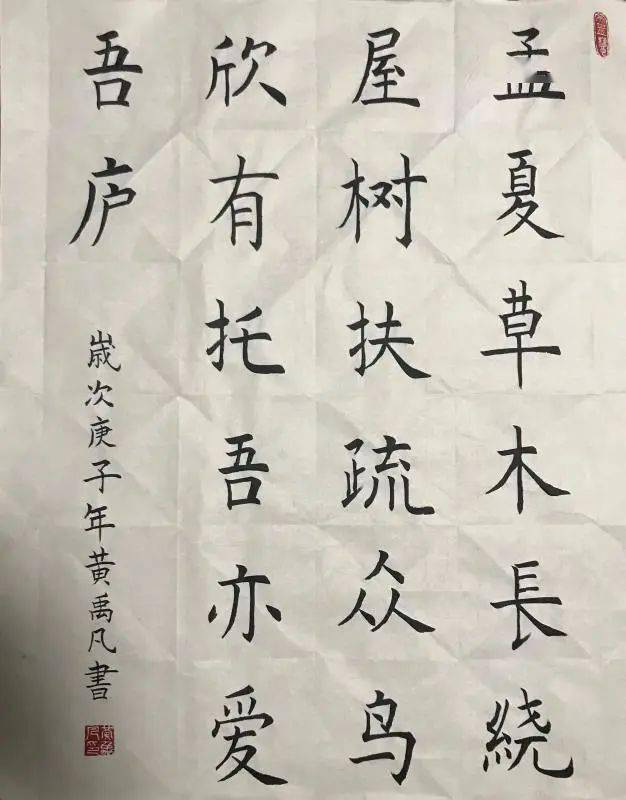 孟夏草木長繞
屋树扶疏众鸟
欣有托吾亦爱
吾庐
歲次庚子年黄禹凡書